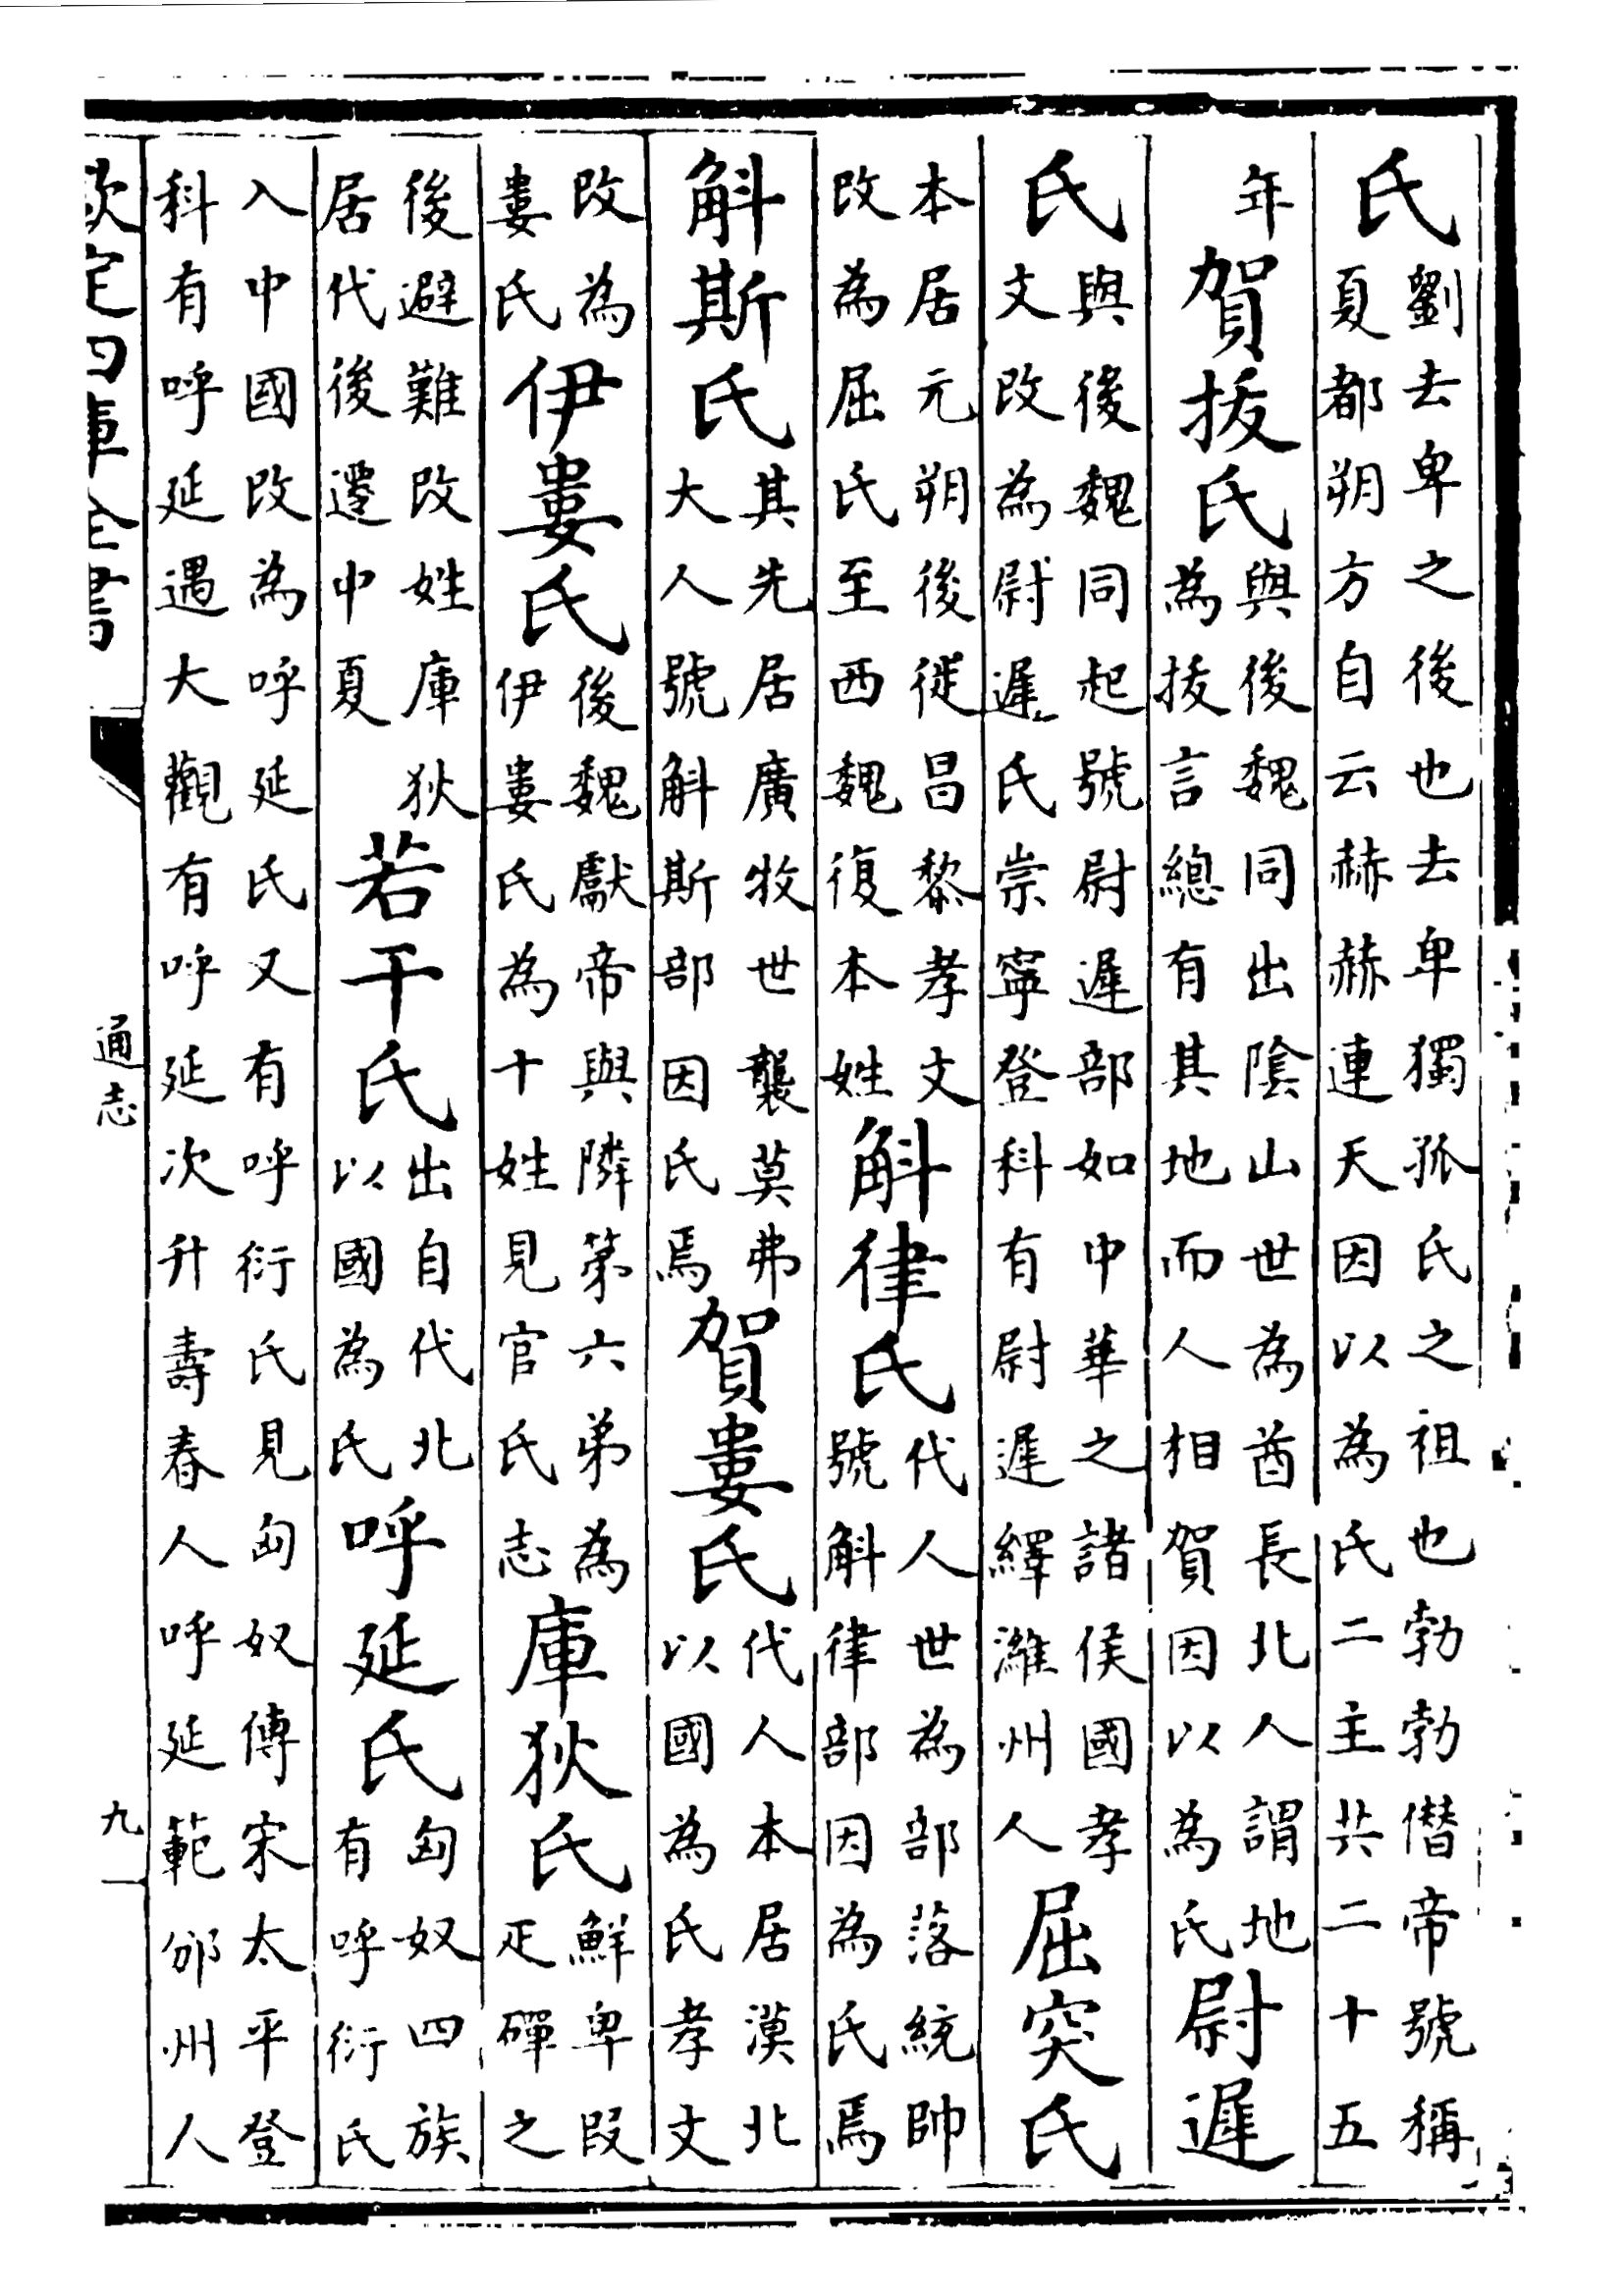 氏劉去卑之後也去卑獨孤氏之祖也勃勃僭帝號稱夏都朔方自云赫赫連天因以為氏二主共二十五
年賀拔氏與後魏同出陰山世為酋長北人謂地為拔言總有其地而人相賀因以為氏尉遲
氏與後魏同起號尉遲部如中華之諸侯國孝文改為尉遲氏崇寧登科有尉遲繹濰州人屈突氏
本居元朔後徙昌黎孝文改為屈氏至西魏復本姓斛律氏代人世為部落統帥號斛律部因為氏焉
斛斯氏其先居廣牧世襲莫弗大人號斛斯部因氏焉賀婁氏代人本居漠北以國為氏孝文
改為婁氏伊婁氏後魏獻帝與隣第六弟為伊婁氏為十姓見官氏志庫狄氏鮮卑段疋磾之
後避難改姓庫狄居代後遷中夏若干氏出自代北以國為氏呼延氏匈奴四族有呼衍氏
入中國改為呼延氏又有呼衍氏見匈奴傳宋太平登科有呼延遇大觀有呼延次升壽春人呼延範邠州人
欽定四庫全書
通志
九一